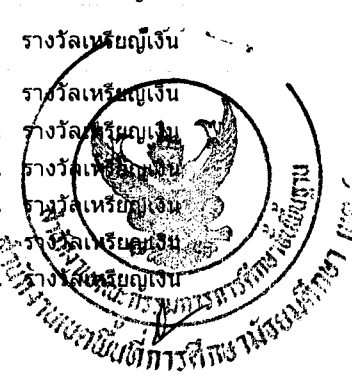 รางวัลเหรียญเงิน
รางวัลเหรียญเงิน
รางวัลเหรียญเงิน
รางวัลเหรียญเงิน
รางวัลเหรียญเงิน
รางวัลเหรียญเงิน
รางวัลเหรียญเงิน
สำนักงานคณะกรรมการการศึกษาขั้นพื้นฐาน
สำนักงานเขตพื้นที่การศึกษามัธยมศึกษา